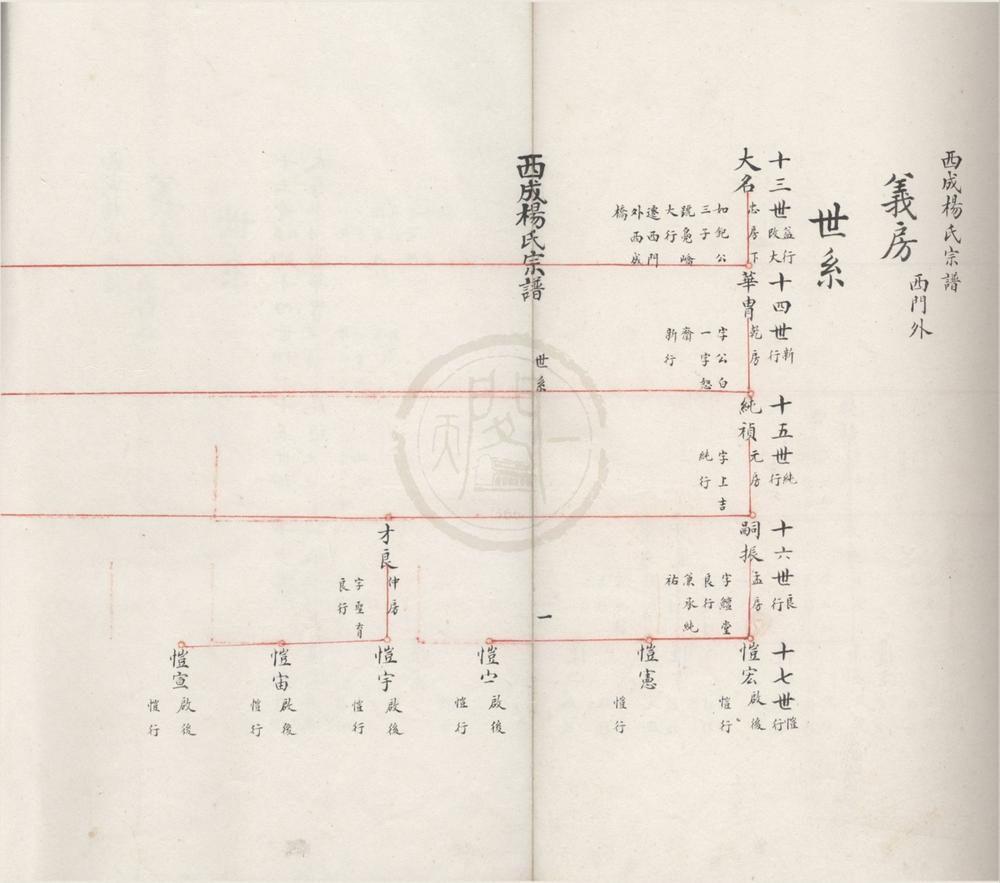 西成楊氏宗譜
義房
西門外
世系
十三世
益行
改大
大名
忠房下
如兒公
三子
大行
遷西門
外西成
橋
十四世
新
行
華胄
乾房
字公白
一字恕
齋
新行
十五世
純
行
純禎
元房
字上吉
純行
十六世
良
行
嗣振
孟房
字鱣堂
良行
兼承純
祐
十七世
愷
行
愷宏
啟後
愷行
愷憲
愷行
啟後
愷行
西成楊氏宗譜
世系
一
才良
仲房
字聖育
良行
愷宇
啟後
愷行
愷宙
啟後
愷行
愷宣
啟後
愷行